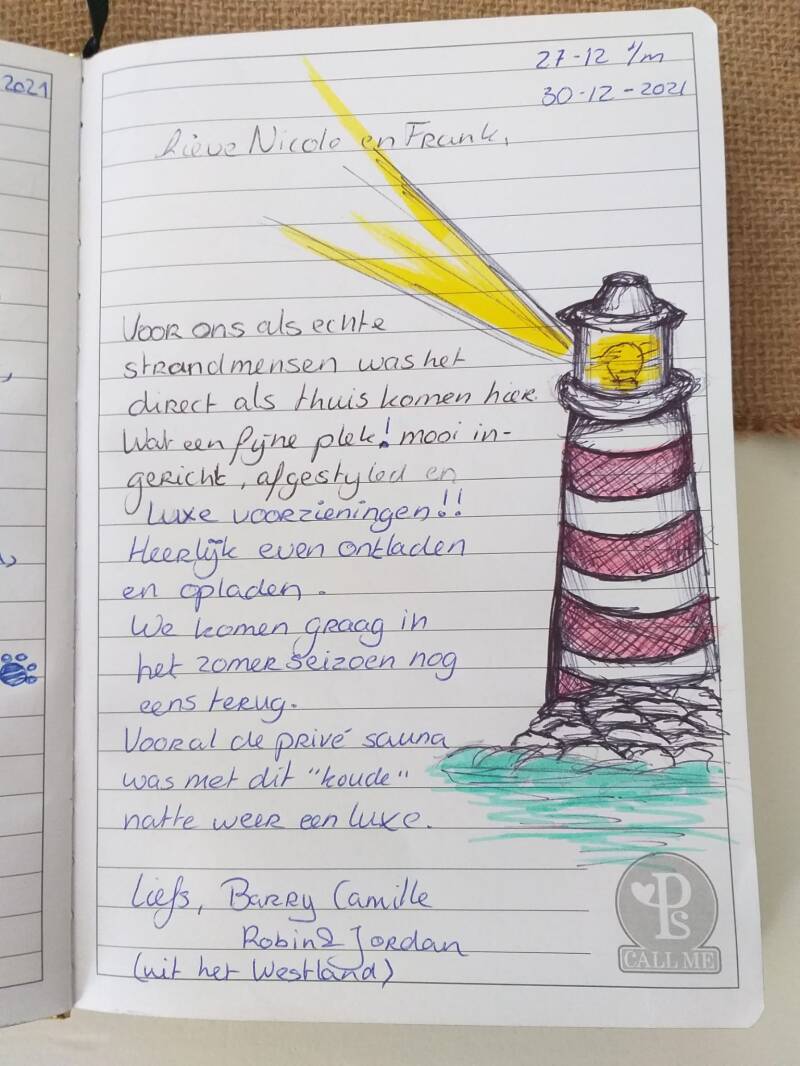 2021
27-12 t/m
30-12-2021
Lieve Nicole en Frank,
Voor ons als echte
strandmensen was het
direct als thuis komen hier.
Wat een fijne plek! mooi in-
gericht, afgestyled en
luxe voorzieningen!!
Heerlijk even ontladen
en opladen.
We komen graag in
het zomerseizoen nog
eens terug.
Vooral de privé sauna
was met dit "koude"
natte weer een luxe.
Liefs, Barry Camille
Robin & Jordan
(uit het Westland)
Ps
CALL ME